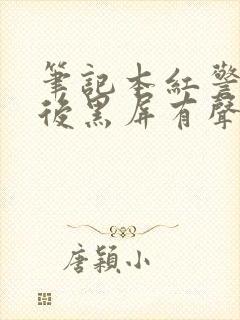 筆記本紅警
後黑屏有聲
唐穎小